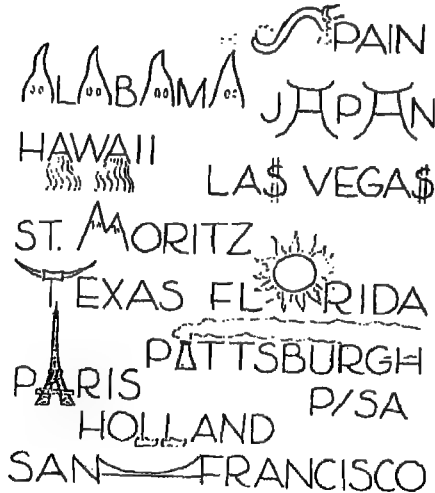 SPAIN
ALABAMA
JAPAN
HAWAII
LA$ VEGA$
ST. MORITZ
TEXAS
FLORIDA
PARIS
PITTSBURGH
P/SA
HOLLAND
SAN FRANCISCO